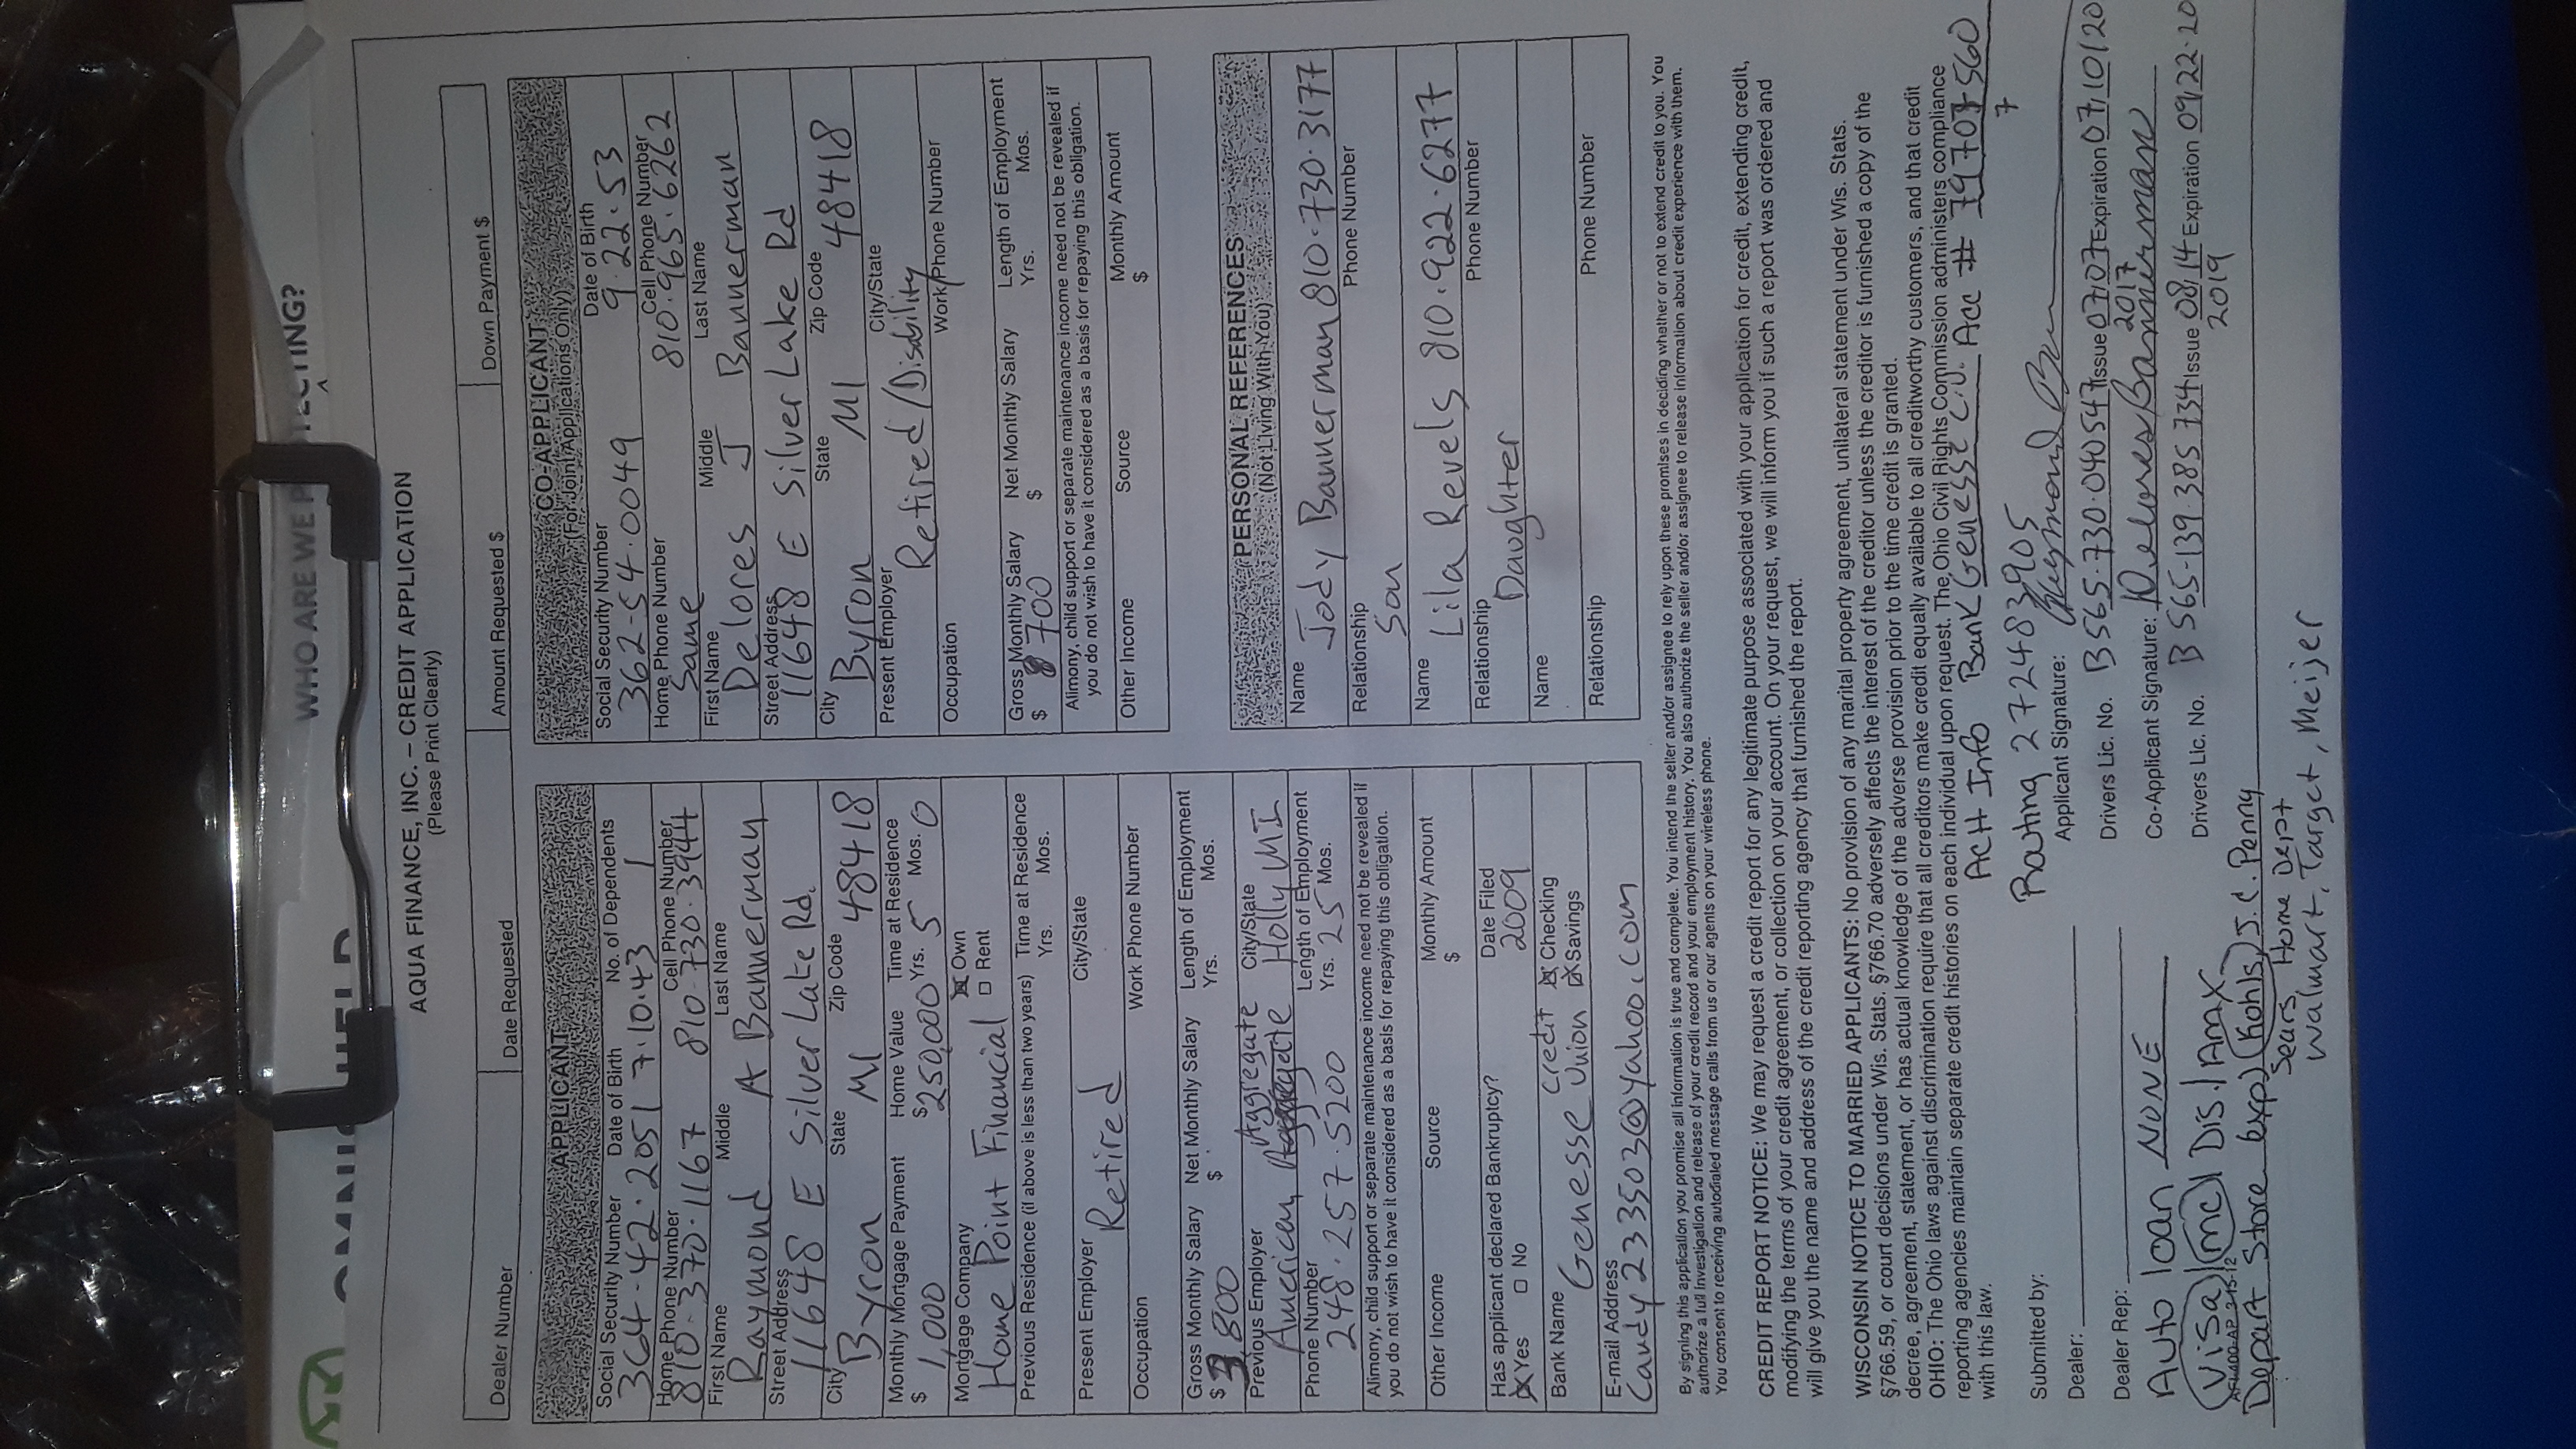 WHO ARE WE PROTECTING?
AQUA FINANCE, INC. – CREDIT APPLICATION
(Please Print Clearly)
Dealer Number
Date Requested
Amount Requested $
Down Payment $
APPLICANT
Social Security Number Date of Birth No. of Dependents
364-42-2051 7.10.43 1
Home Phone Number Cell Phone Number
810.370.1167 810-730.3944
First Name Middle Last Name
Raymond A Bannerman
Street Address
11648 E Silver Lake Rd.
City State Zip Code
Byron MI 48418
Monthly Mortgage Payment Home Value Time at Residence
$ 1,000 $250,000 Yrs. 5 Mos. 0
Mortgage Company ☒ Own
Home Point Financial ☐ Rent
Previous Residence (if above is less than two years) Time at Residence
Yrs. Mos.
Present Employer City/State
Retired
Occupation Work Phone Number
Gross Monthly Salary Net Monthly Salary Length of Employment
$ 3800 $ Yrs. Mos.
Previous Employer City/State
American Aggregate Holly MI
Phone Number Length of Employment
248.257.5200 Yrs. 25 Mos.
Alimony, child support or separate maintenance income need not be revealed if
you do not wish to have it considered as a basis for repaying this obligation.
Other Income Source Monthly Amount
$
Has applicant declared Bankruptcy? Date Filed
☒ Yes ☐ No 2009
Bank Name ☒ Checking
Genesse Credit Union ☒ Savings
E-mail Address
Candy233503@yahoo.com
CO-APPLICANT
(For Joint Applications Only)
Social Security Number Date of Birth
362-54.0049 9.22.53
Home Phone Number Cell Phone Number
Same 810.965.6262
First Name Middle Last Name
Delores J Bannerman
Street Address
11648 E Silver Lake Rd
City State Zip Code
Byron MI 48418
Present Employer City/State
Retired/Disability
Occupation Work Phone Number
Gross Monthly Salary Net Monthly Salary Length of Employment
$ 700 $ Yrs. Mos.
Alimony, child support or separate maintenance income need not be revealed if
you do not wish to have it considered as a basis for repaying this obligation.
Other Income Source Monthly Amount
$
PERSONAL REFERENCES
(Not Living With You)
Name Jody Bannerman 810-730.3177
Relationship Phone Number
Son
Name Lila Revels 810.922.6277
Relationship Phone Number
Daughter
Name
Relationship Phone Number
By signing this application you promise all information is true and complete. You intend the seller and/or assignee to rely upon these promises in deciding whether or not to extend credit to you. You
authorize a full investigation and release of your credit record and your employment history. You also authorize the seller and/or assignee to release information about credit experience with them.
You consent to receiving autodialed message calls from us or our agents on your wireless phone.
CREDIT REPORT NOTICE: We may request a credit report for any legitimate purpose associated with your application for credit, extending credit,
modifying the terms of your credit agreement, or collection on your account. On your request, we will inform you if such a report was ordered and
will give you the name and address of the credit reporting agency that furnished the report.
WISCONSIN NOTICE TO MARRIED APPLICANTS: No provision of any marital property agreement, unilateral statement under Wis. Stats.
§766.59, or court decisions under Wis. Stats. §766.70 adversely affects the interest of the creditor unless the creditor is furnished a copy of the
decree, agreement, statement, or has actual knowledge of the adverse provision prior to the time credit is granted.
OHIO: The Ohio laws against discrimination require that all creditors make credit equally available to all creditworthy customers, and that credit
reporting agencies maintain separate credit histories on each individual upon request. The Ohio Civil Rights Commission administers compliance
with this law.
ACH Info Bank Genesse C.U. Acc #
Routing 272483905
Submitted by:
Dealer:
Dealer Rep:
Applicant Signature: Raymond
Drivers Lic. No. B 565-730-040547 Issue 07/07 2017 Expiration 07/10/20
Co-Applicant Signature: Delores Bannerman
Drivers Lic. No. B 565-139.385 734 Issue 08/14 2019 Expiration 09/22.20
Auto loan NONE
Visa/mc/Dis./Amx
Depart Store exp) Kohls) J.C. Penny
Sears, Home Dept
Walmart, Target, Meijer